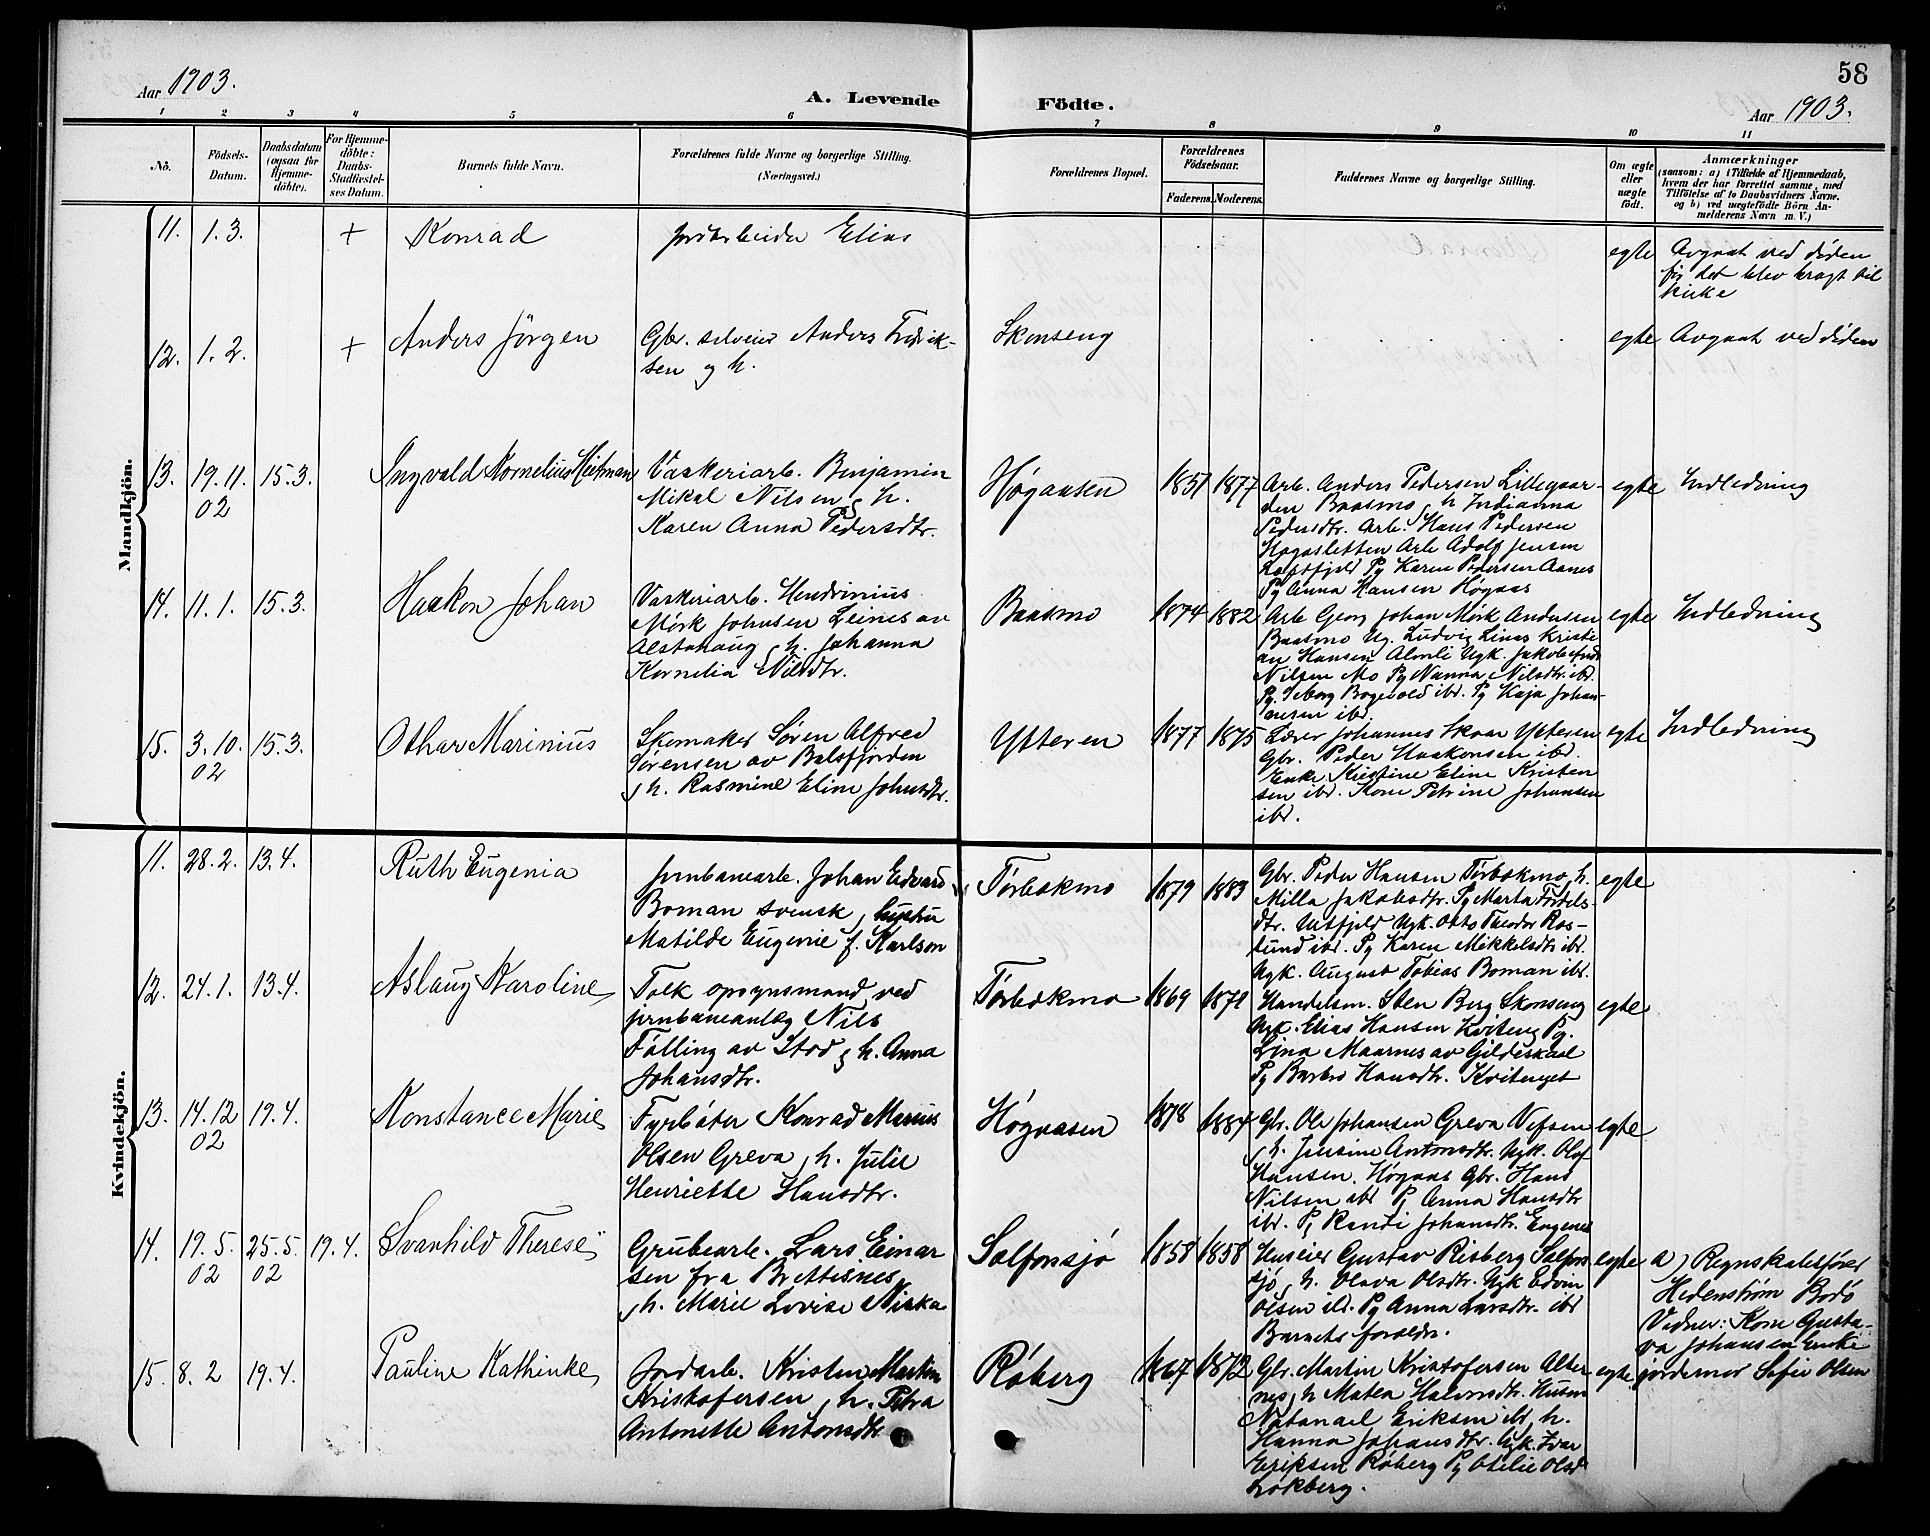 58
Aar 1903.
A. Levende Födte.
Aar 1903.
1 2 3 4 5 6 7 8 9 10 11
No.
Födsels-Datum.
Daabsdatum (ogsaa for Hjemme-döbte).
For Hjemme-döbte: Daabs-Stadfæstel-ses Datum.
Barnets fulde Navn.
Forældrenes fulde Navne og borgerlige Stilling.
(Næringsvei.)
Forældrenes Bopæl.
Forældrenes Födselsaar.
Faderens. Moderens.
Faddernes Navne og borgerlige Stilling.
Om ægte eller uægte födt.
Anmærkninger
(saasom: a) i Tilfælde af Hjemmedaab,
hvem der har forrettet samme, med
Tilföielse af to Daabsvidners Navne.
og b) ved uægtefödte Börn An-
melderens Navn m. V.)
Mandkjön.
11. 1.3. + Konrad
jordarbeider Elias
egte
Avgaat ved döden
för det blev bragt til
kirke
12. 1.2. + Anders Jörgen
Gbr. selveier Anders Fredrik-
sen og h.
Skonseng
egte
Avgaat ved döden
13. 19.11.02 15.3. Ingvald Kornelius Heitman
Vaskeriarb. Benjamin
Mikal Nilsen g h.
Karen Anna Pedersdtr.
Høgaasen
1851 1877
Arb. Anders Pedersen Lillegaar-
den Baasmo, h Indianna
Pedersdtr. Arb. Hans Pedersen
Høgasletten Arb Adolf Jensen
Pg Karen Pedersen Aanes
Pg Anna Hansen Høgaas
egte
Indledning
14. 11.1. 15.3. Haakon Johan
Vaskeriarb. Hendrinius
Mørk Johnsen Leines av
Alstahaug, h. Johanna
Kornelia Nilsdtr.
Baasmo
1874 1882
Arb Georg Johan Mørk Andersen
Baasmo Ug. Ludvig Linas Kristi
an Hansen Almli Ugk. Jakob
Nilsen Mo Pg Nanna Nilsdtr. ibd.
Pg. Seborg Bogevold ibd. Pg Kaja Johan-
nesen ibd.
egte
Indledning
15. 3.10.02 15.3. Othar Marinius
Skomaker Sören Alfred
Sörensen av Balsfjorden
, h. Rasmine Eline Johnsdtr.
Ytteren
1877 1875
Lærer Johannes Skaar Ytteren
Gbr. Peder Haakonsen ibd.
Enke Kristine Eline Kristen
sen ibd. Kone Petrine Johansen
ibd.
egte
Indledning
Kvindekjön.
11. 28.2. 13.4. Ruth Eugenia
jernbanearb. Johan Edvard
Boman svensk, hustru
Matilde Eugenie f. Karlson
Tørbækmo
1879 1883
Gbr. Peder Hansen Tørbækmo, h.
Milla Jakobsdtr. Pg Marta Tordels-
dtr. Utfjeld Ugk. Otto Theodor Ros-
lund ibd. Pg Karen Mikkelsdtr ibd.
Ugk. August Tobias Boman ibd.
egte
12. 24.1. 13.4. Aslaug Karoline
Tolk opsynsmand ved
jernbaneanlæg Nils
Følling av Stod g h. Anna
Johansdtr.
Tørbækmo
1869 1871
Handelsm. Sten Berg Skonseng
Ugk. Elias Hansen Kviteng Pg.
Lina Maarnes av Gildeskaal
Pg Barbro Hansdtr. Kvitenget
egte
13. 14.12.02 19.4. Konstance Marie
Fyrbøter Konrad Marius
Olsen Greva, h. Julie
Henriette Hansdtr.
Høgaasen
1878 1884
Gbr. Ole Johansen Greva Vefsen
, h. Jensine Antonsdtr. Ugk. Olaf
Hansen. Høgaas Gbr. Hans
Nilsen ibd Pg Anna Hansdtr
ibd. Pg Randi Johansdtr. Engenes
egte
14. 19.5.02 25.5.02 19.4. Svanhild Therese
Grubearb. Lars Einar
sen fra Brettesnes
, h. Marie Lovise Niska
Salfonsjö
1858 1858
Huseier Gustav Risberg Salfon
sjö, h. Olava Olsdtr. Ugk Edvin
Olsen ibd. Pg Anna Larsdtr. ibd
Barnets foreldre.
egte
a) Regnskabsfører
Hedenstrøm Bodö
Vidner: Kone Gusta-
va Johansen Enke
jordemor Sofie Olsen
15. 8.2 19.4. Pauline Kathinke
Jordarb. Kristen Martin
Kristofersen, h. Petra
Antonette Antonsdtr
Røberg
1867 1872
Gbr. Martin Kristofersen Alter-
nes, h Matea Halvorsdtr. Husm
Natanael Eriksen ibd, h.
Hanna Johansdtr. Ugk. Ivar
Eriksen Røberg Pg Otelie Olsd
Løkberg.
egte